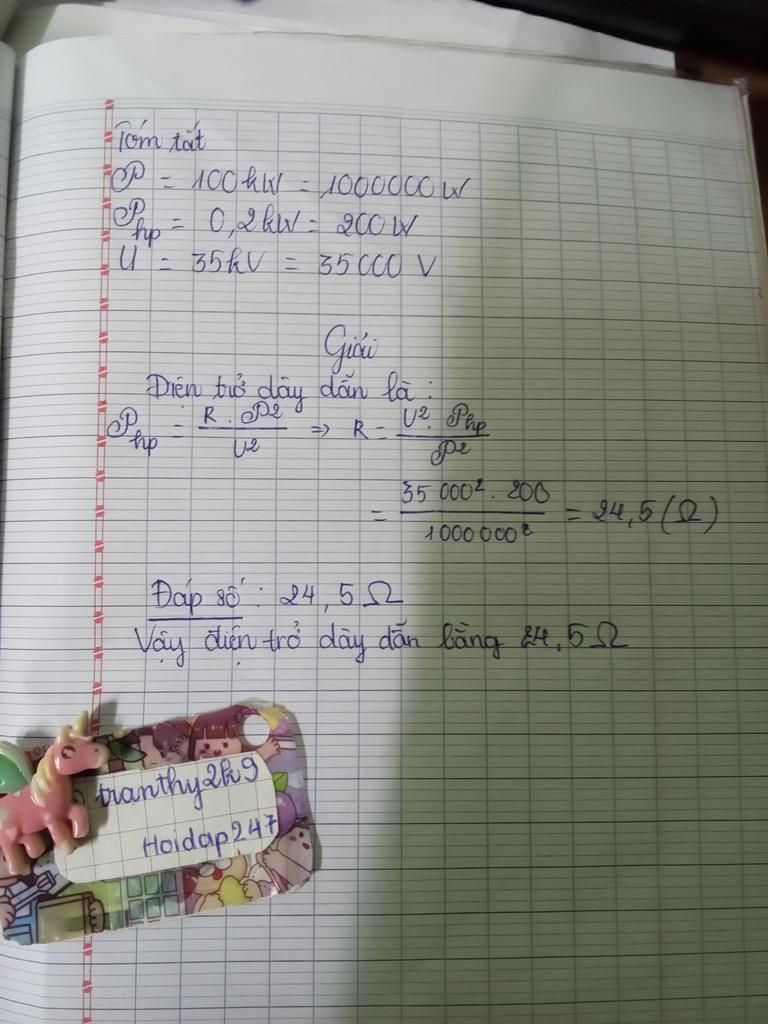 Tóm tắt
P = 100kW = 1000000W
P hp = 0,2kW = 200W
U = 35kV = 35000 V
Giải
Điện trở dây dẫn là :
P hp = R . P² / U² => R = U² . P hp / P²
= 35 000² . 200 / 1000000² = 24,5 (Ω)
Đáp số : 24,5Ω
Vậy điện trở dây dẫn bằng 24,5Ω
tranthy2k9
Hoidap247